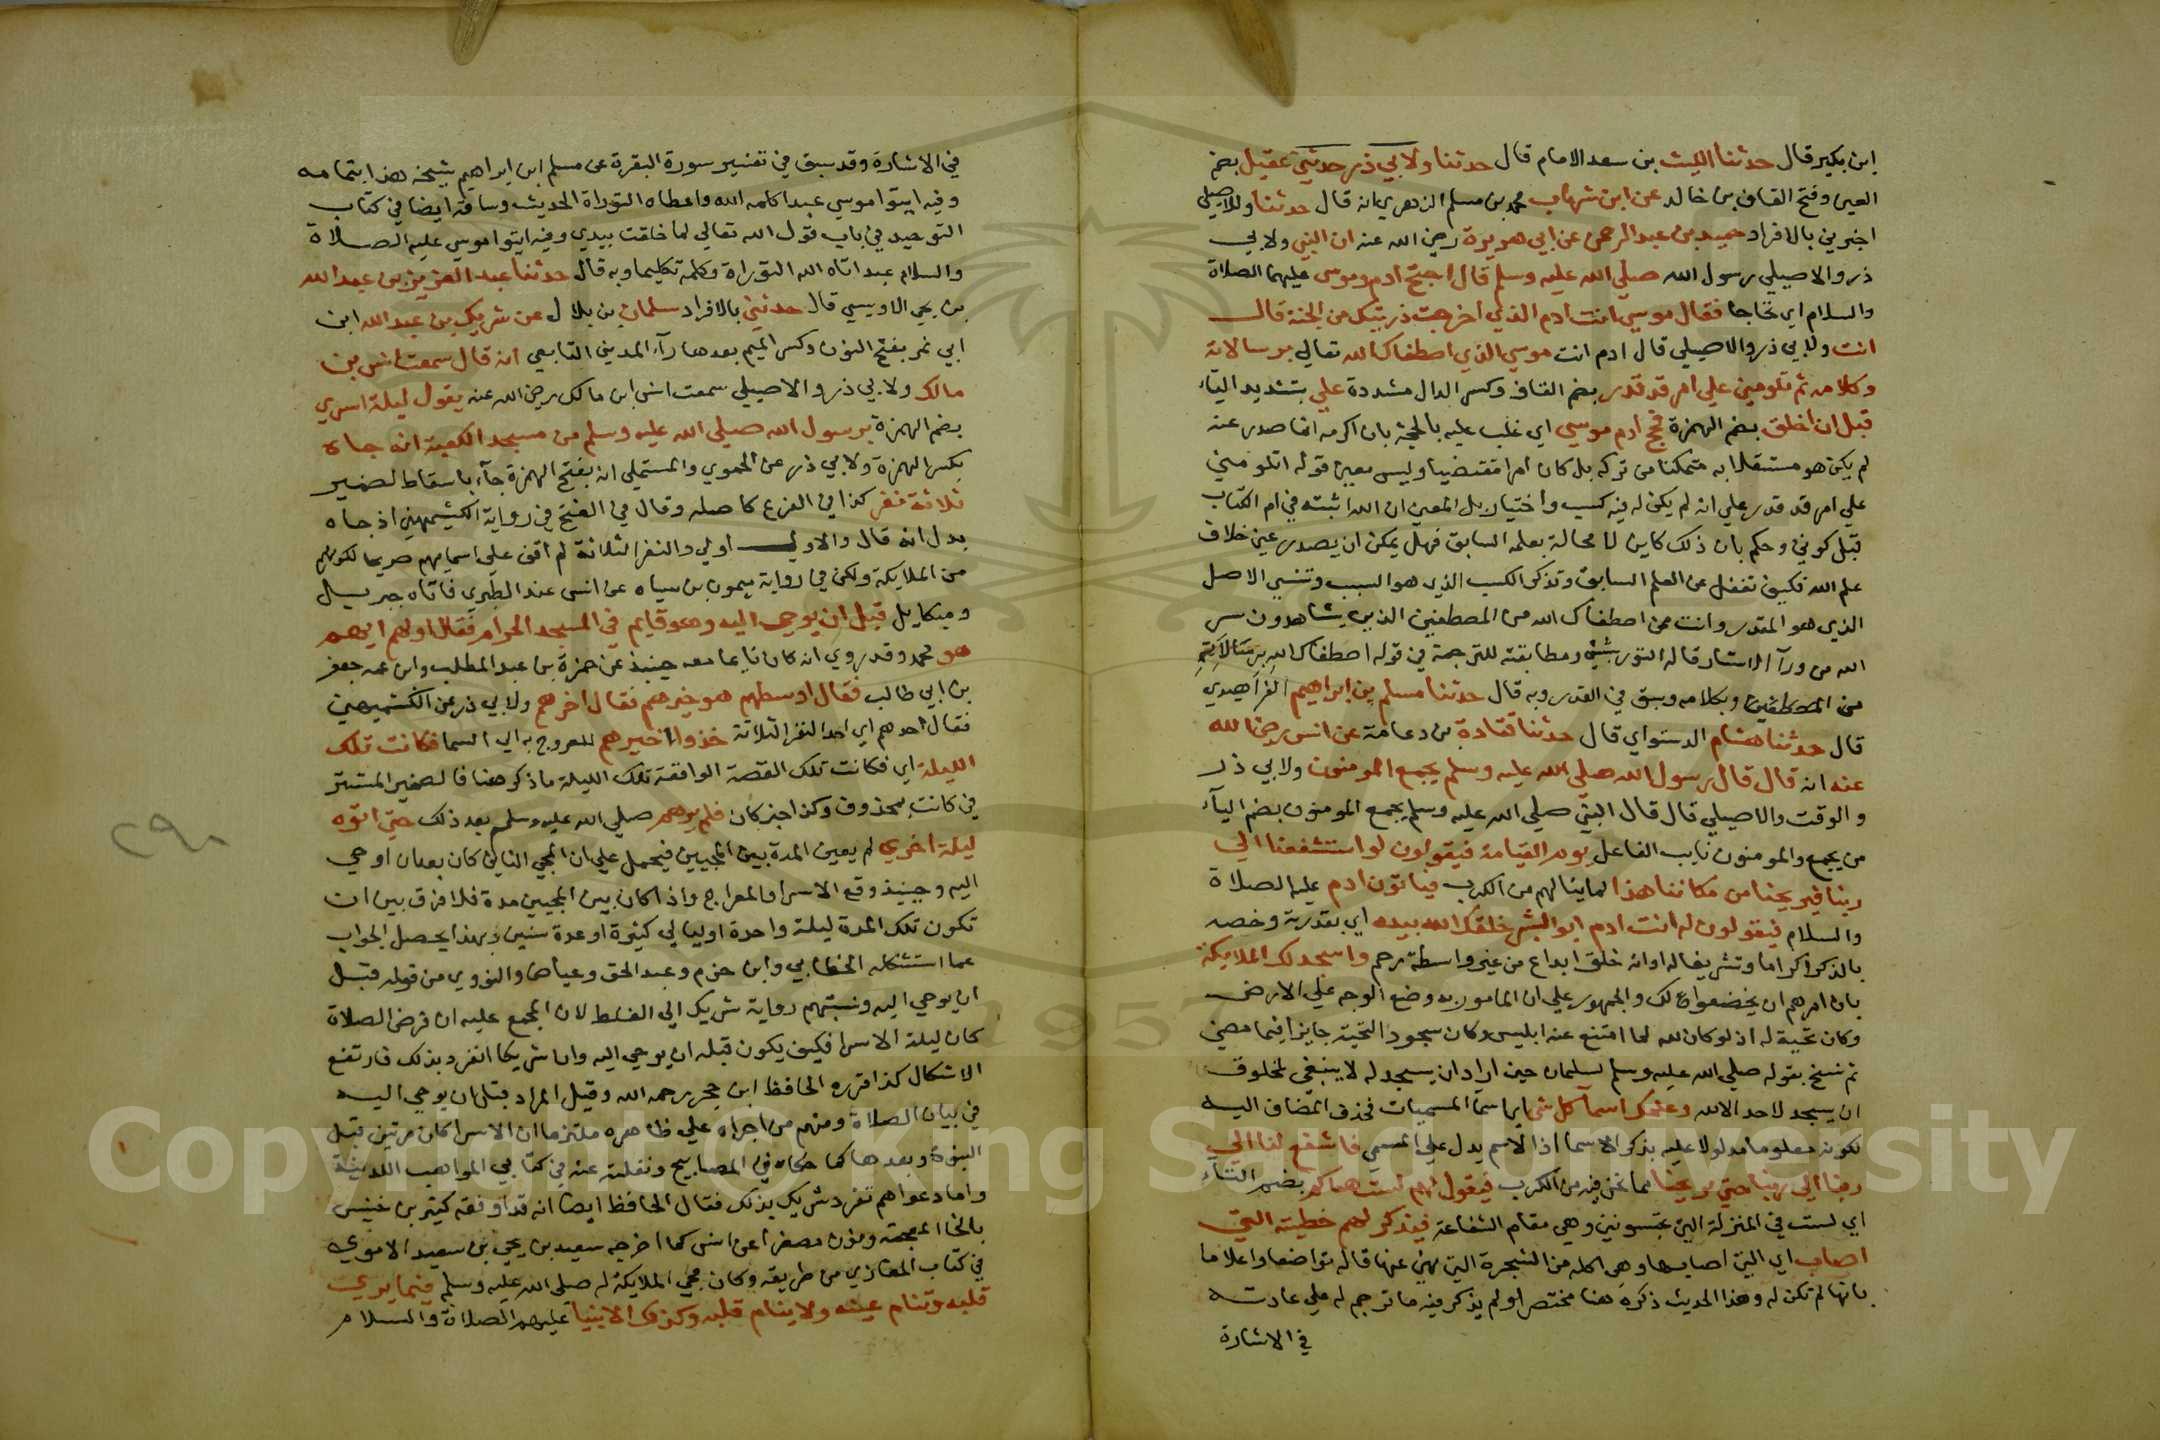 ابن بكير قال حدثنا الليث بن سعد الامام قال حدثنا ولابي ذر حدثني عقيل بضم
العين وفتح القاف بن خالد عن ابن شهاب محمد بن مسلم الزهري انه قال حدثنا وللاصيلي
اخبرني بالافراد حميد بن عبد الرحمن عن ابي هريرة رضي الله عنه ان النبي ولابي
ذر والاصيلي رسول الله صلي الله عليه وسلم قال احتج ادم وموسي عليهما الصلاة
والسلام اي تحاجا فقال موسي انت ادم الذي اخرجت ذريتك من الجنة قال
انت ولابي ذر والاصيلي قال ادم انت موسي الذي اصطفاك الله تعالي برسالاته
وكلامه ثم تلومني علي امر قد قدر بضم القاف وكسر الدال مشددة علي بتشديد الياء
قبل ان اخلق بضم الهمزة فحج ادم موسي اي غلب عليه بالحجة بان اكرمه انما صدر عنه
لم يكن هو مستقلا به متمكنا من تركه بل كان امرا مقتضيا وليس معني قوله اتلومني
علي امر قد قدر علي انه لم يكن له فيه كسب واختيار بل المعني ان الله اثبته في ام الكتاب
قبل كوني وحكم بان ذلك كاين لا محالة بعلمه السابق فهل يمكن ان يصدر عني خلاف
علم الله فكيف تغفل عن العلم السابق وتذكر الكسب الذي هو السبب وتنسي الاصل
الذي هو القدر وانت ممن اصطفاك الله من المصطفين الذين يشاهدون سر
الله من ورآ الاستار قاله التوربشتي ومطابقته للترجمة في قوله اصطفاك الله برسالاته
من المصطفين وبكلامه وسبق في القدر وبه قال حدثنا مسلم بن ابراهيم الفراهيدي
قال حدثنا هشام الدستواي قال حدثنا قتادة بن دعامة عن انس رضي الله
عنه انه قال قال رسول الله صلي الله عليه وسلم يجمع المومنون ولابي ذر
والوقت والاصيلي قال قال النبي صلي الله عليه وسلم يجمع المومنون بضم اليآء
من يجمع والمومنون نايب الفاعل يوم القيامة فيقولون لو استشفعنا الي
ربنا فيريحنا من مكاننا هذا لما ينالهم من الكرب فياتون ادم عليه الصلاة
والسلام فيقولون له انت ادم ابو البشر خلقك الله بيده اي بقدرته وخصه
بالذكر اكراما وتشريفا له او انه خلق ابداع من غير واسطة رحم واسجد لك الملايكة
بان امرهم ان يخضعوا لك والجمهور علي ان المامور به وضع الوجه علي الارض
وكان تحية له اذ لو كان لله لما امتنع عنه ابليس وكان سجود التحية جايزا فيما مضي
ثم نسخ بقوله صلي الله عليه وسلم لسلمان حين اراد ان يسجد له لا ينبغي لمخلوق
ان يسجد لاحد الا لله وعلمك اسمآ كل شي اي اسمآ المسميات فحذف المضاف اليه
لكونه معلوما مدلولا عليه بذكر الاسما اذ الاسم يدل علي المسمي فاشفع لنا الي
ربنا الي ربنا حتي يريحنا مما نحن فيه من الكرب فيقول لهم لست هناكم بضم الثناء
اي لست في المنزلة التي تحسبونني وهي مقام الشفاعة فيذكر لهم خطيئته التي
اصاب اي التي اصابها وهي اكله من الشجرة التي نهي عنها قاله تواضعا واعلاما
بانها لم تكن له وهذا الحديث ذكره هنا مختصرا ولم يذكر فيه ما ترجم له علي عادته
في الاشارة
في الاشارة وقد سبق في تفسير سورة البقرة عن مسلم ابن ابراهيم شيخه هذا بتمامه
وفيه ايتوا موسي عبدا كلمه الله واعطاه التوراة الحديث وساقه ايضا في كتاب
التوحيد في باب قول الله تعالي لما خلقت بيدي وفيه ايتوا موسي عليه الصلاة
والسلام عبدا اتاه الله التوراة وكلمه تكليما وبه قال حدثنا عبد العزيز بن عبد الله
بن يحي الاويسي قال حدثني بالافراد سلمان بن بلال عن شريك بن عبد الله ابن
ابي نمر بفتح النون وكسر الميم بعدها رآء المديني التابعي انه قال سمعت انس بن
مالك ولابي ذر والاصيلي سمعت انس ابن مالك رضي الله عنه يقول ليلة اسري
بضم الهمزة برسول الله صلي الله عليه وسلم من مسجد الكعبة انه جاه
بكسر الهمزة ولابي ذر عن الحموي والمستملي انه بفتح الهمزة جآء باسقاط لضمير
ثلاثة نفر كذا في الفرع كاصله وقال في الفتح في رواية الكشميهني اذ جاه
بدل انه قال والاولي اولي والنفر الثلاثة لم اقف علي اسمايهم صريحا لكونهم
من الملايكة ولكن في رواية ميمون بن سياه عن انس عند الطبري فاتاه جبريل
وميكايل قبل ان يوحي اليه وهو قايم في المسجد الحرام فقال اولهم ايهم
هو محمد وقد روي انه كان نايما معه حينيذ عن حمزة بن عبد المطلب وابن عمه جعفر
بن ابي طالب فقال اوسطهم هو خيرهم فقال اخرهم ولابي ذر عن الكشميهني
فقال احدهم اي احد النفر الثلاثة خذوا خيرهم للعروج به الي السما فكانت تلك
الليلة اي فكانت تلك القصة الواقعة تلك الليلة ما ذكر هنا فالضمير المستتر
في كانت بمحذوف وكذا خبر كان فلم يرهم صلي الله عليه وسلم بعد ذلك حتي اتوه
ليلة اخري لم يعين المدة بين المجيين فيحمل علي ان المجي الثاني كان بعد ان اوحي
اليه وحينيذ وقع الاسرا والمعراج واذا كان بين المجيين مدة فلا فرق بين ان
تكون تلك المدة ليلة واحدة او ليالي كثيرة او عدة سنين وبهذا يحصل الجواب
عما استشكله الخطابي وابن حزم وعبد الحق وعياض والنووي من قوله قبل
ان يوحي اليه ونسبتهم رواية شريك الي الغلط لان المجمع عليه ان فرض الصلاة
كان ليلة الاسرا فكيف يكون قبله ان يوحي اليه وان شريكا انفرد بذلك فارتفع
الاشكال كذا قرره الحافظ ابن حجر رحمه الله وقيل المراد قبل ان يوحي اليه
في بيان الصلاة ومنهم من اجراه علي ظاهره ملتزما ان الاسرا كان مرتين قبل
النبوة وبعدها كما حكاه في المصابيح ونقلته عنه في كتابي المواهب اللدنية
واما دعواهم تفرد شريك بذلك فقال الحافظ ايضا انه قد اوفقه كثير بن خنيس
بالخا المعجمة ونون مصغرا عن انس كما اخرجه سعيد بن يحي بن سعيد الاموي
في كتاب المغازي من طريقه وكان مجي الملايكة له صلي الله عليه وسلم فيما يري
قلبه وتنام عينه ولا ينام قلبه وكذلك الانبيا عليهم الصلاة والسلام
٢٩٠
Copyright © King Saud University
1957